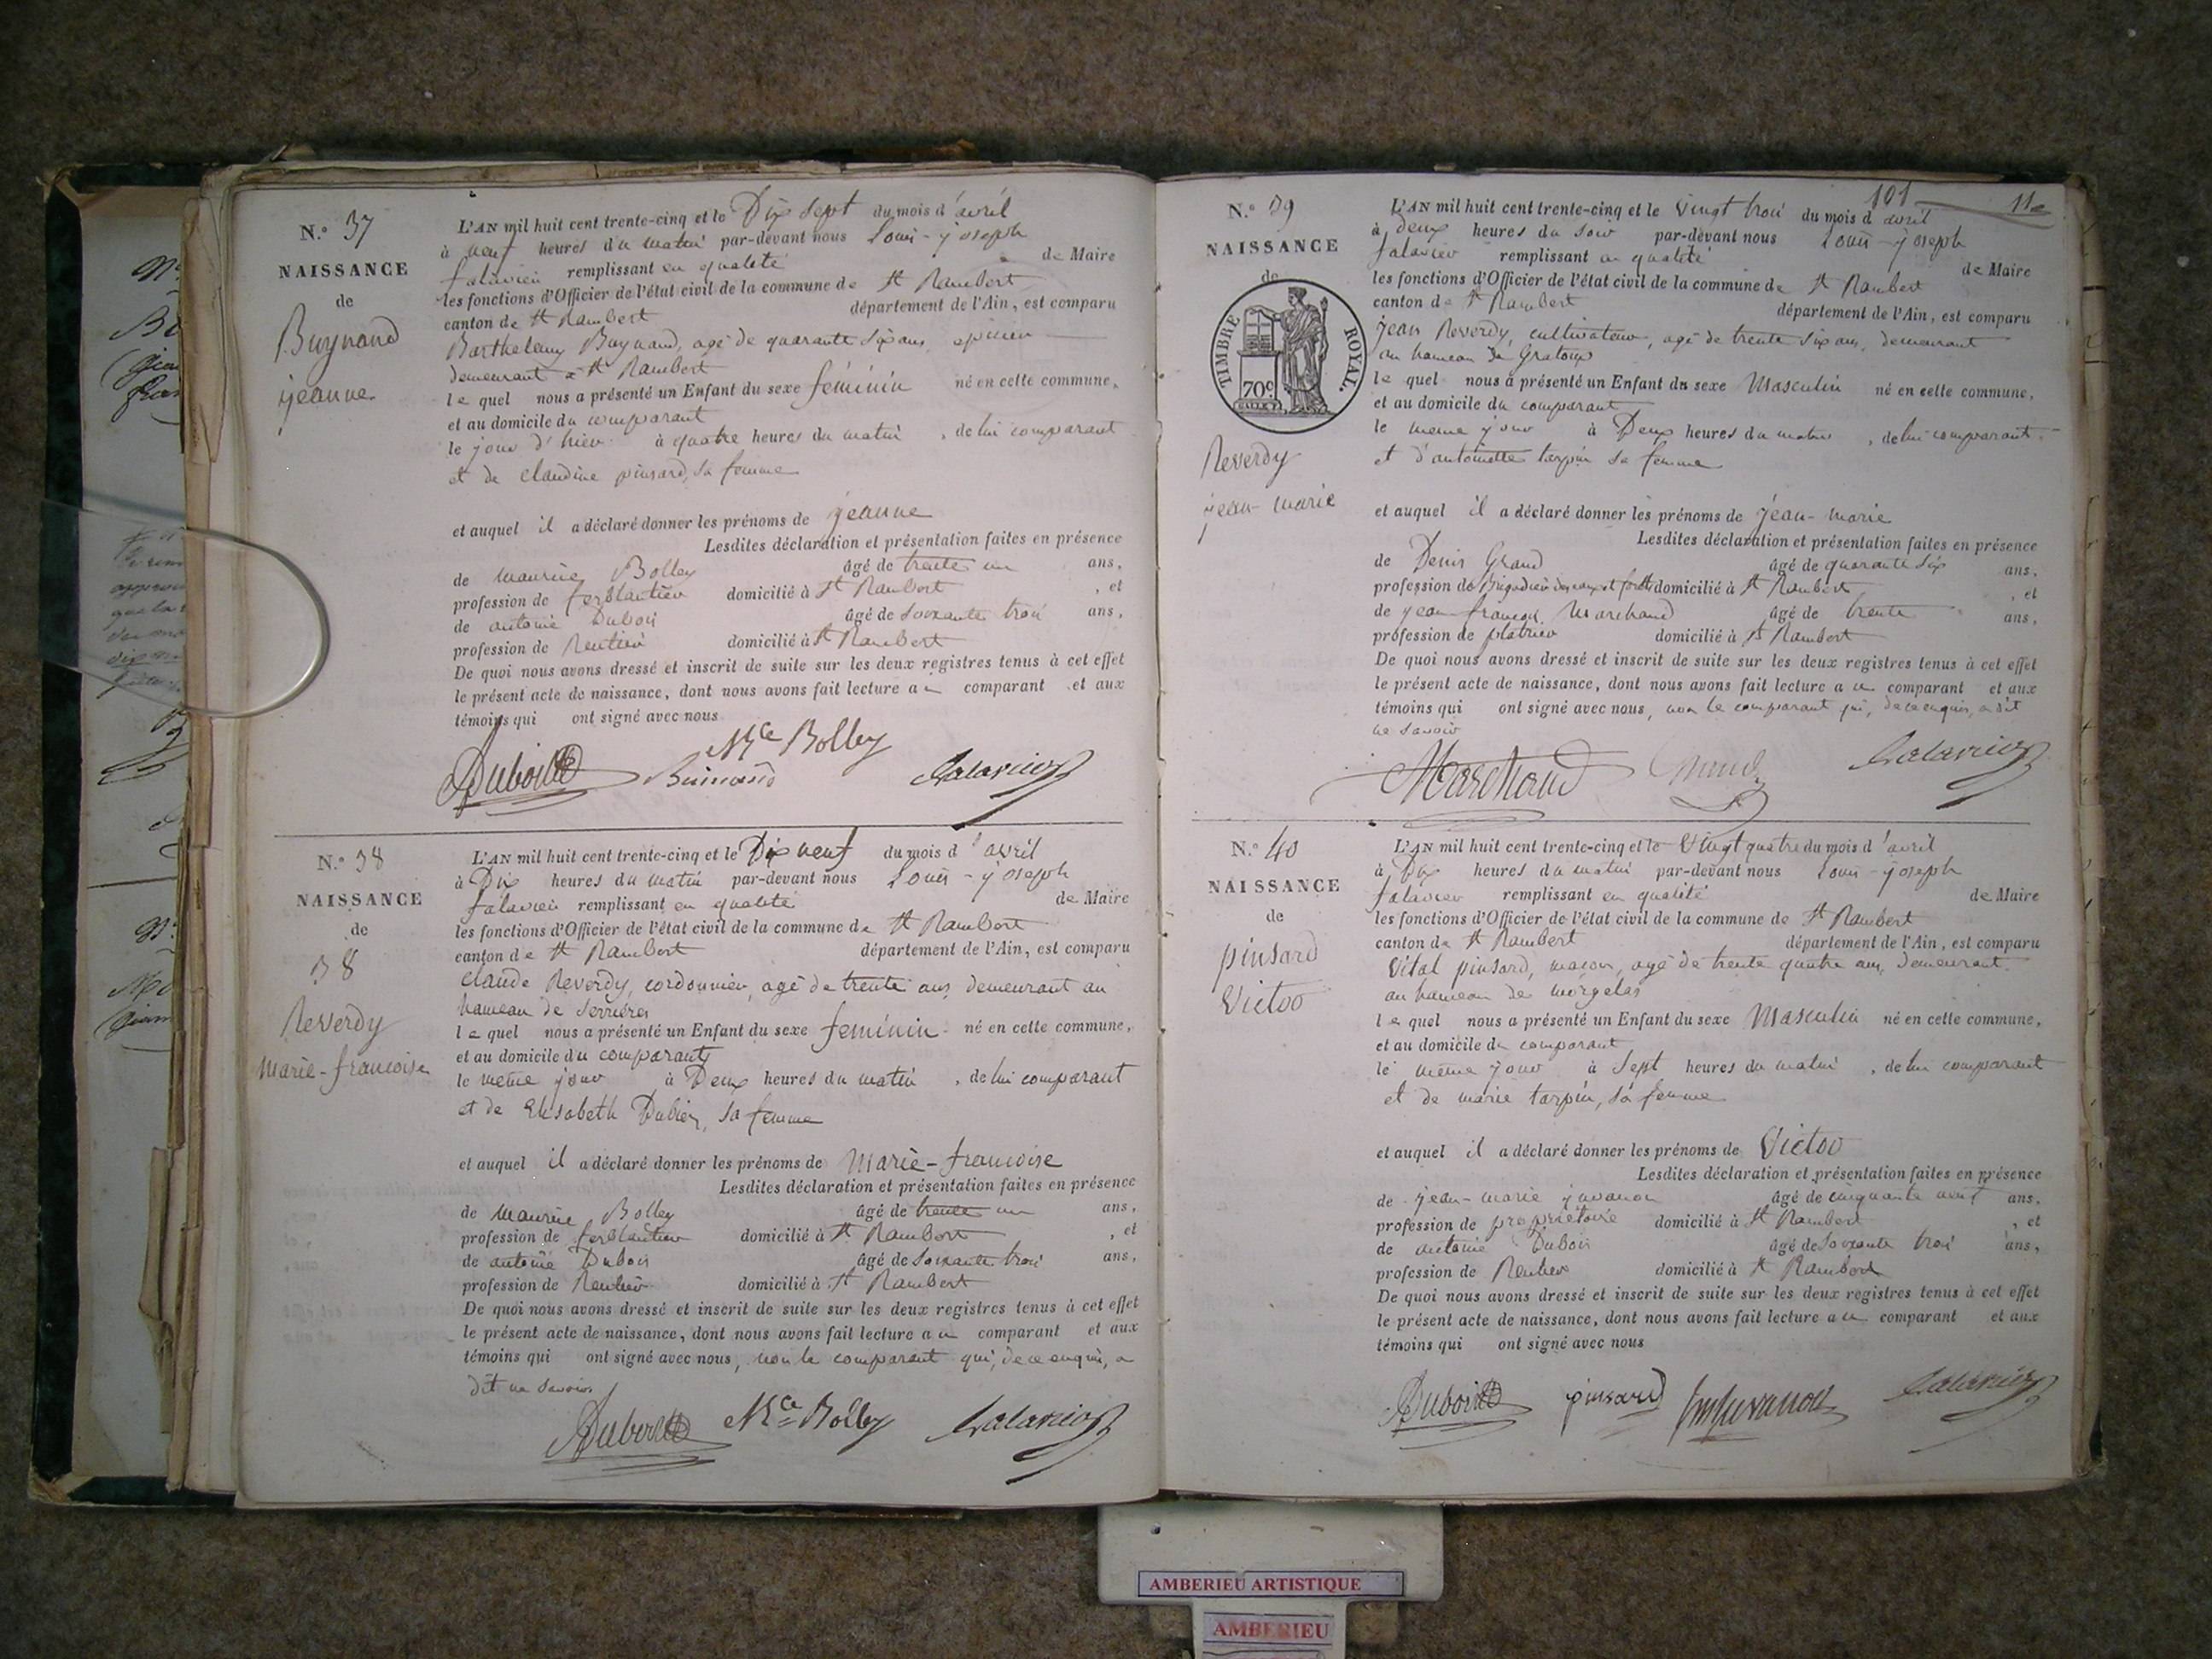 N.° 37
NAISSANCE
de
Buynand
jeanne
L'AN mil huit cent trente-cinq et le Dix sept du mois d'avril
à neuf heures du matin par-devant nous Louis-joseph
falavier remplissant en qualité de Maire
les fonctions d'Officier de l'état civil de la commune de St Rambert
canton de St Rambert département de l'Ain, est comparu
Barthelemy Buynand, agé de quarante six ans, epicier
demeurant a St Rambert
le quel nous a présenté un Enfant du sexe féminin né en cette commune,
et au domicile du comparant
le jour d'hier à quatre heures du matin, de lui comparant
et de claudine pinsard, sa femme
et auquel il a déclaré donner les prénoms de jeanne
Lesdites déclaration et présentation faites en présence
de maurice Bolley âgé de trente un ans,
profession de ferblantier domicilié à St Rambert, et
de antoine Dubois âgé de soixante trois ans,
profession de Rentier domicilié à St Rambert
De quoi nous avons dressé et inscrit de suite sur les deux registres tenus à cet effet
le présent acte de naissance, dont nous avons fait lecture au comparant et aux
témoins qui ont signé avec nous
Mce Bolley
Dubois Buinand falavier
N.° 38
NAISSANCE
de
38
Reverdy
marie-francoise
L'AN mil huit cent trente-cinq et le Dix neuf du mois d'avril
à Dix heures du matin par-devant nous Louis-joseph
falavier remplissant en qualité de Maire
les fonctions d'Officier de l'état civil de la commune de St Rambert
canton de St Rambert département de l'Ain, est comparu
claude Reverdy, cordonnier, agé de trente ans, demeurant au
hameau de serrieres
le quel nous a présenté un Enfant du sexe feminin né en cette commune,
et au domicile du comparant
le même jour à Deux heures du matin, de lui comparant
et de Elisabeth Dubier, sa femme
et auquel il a déclaré donner les prénoms de Marie-francoise
Lesdites déclaration et présentation faites en présence
de maurice Bolley âgé de trente un ans,
profession de ferblantier domicilié à St Rambert, et
de antoine Dubois âgé de soixante trois ans,
profession de Rentier domicilié à St Rambert
De quoi nous avons dressé et inscrit de suite sur les deux registres tenus à cet effet
le présent acte de naissance, dont nous avons fait lecture au comparant et aux
témoins qui ont signé avec nous, non le comparant qui, de ce enquis, a
dit ne savoir
Dubois Mce Bolley falavier
101 11e
N.° 39
NAISSANCE
de
TIMBRE ROYAL.
70c.
Reverdy
jean-marie
L'AN mil huit cent trente-cinq et le vingt trois du mois d'avril
à deux heures du soir par-devant nous Louis-joseph
falavier remplissant en qualité de Maire
les fonctions d'Officier de l'état civil de la commune de St Rambert
canton de St Rambert département de l'Ain, est comparu
jean Reverdy, cultivateur, agé de trente six ans, demeurant
au hameau de Gratoux
le quel nous a présenté un Enfant du sexe Masculin né en cette commune,
et au domicile du comparant
le meme jour à Deux heures du matin, de lui comparant
et d'antoinette tarpin sa femme
et auquel il a déclaré donner les prénoms de jean-marie
Lesdites déclaration et présentation faites en présence
de Denis Grand âgé de quarante six ans,
profession de Brigadier des eaux et forets domicilié à St Rambert, et
de jean francois Marchand âgé de trente ans,
profession de platrier domicilié à St Rambert
De quoi nous avons dressé et inscrit de suite sur les deux registres tenus à cet effet
le présent acte de naissance, dont nous avons fait lecture au comparant et aux
témoins qui ont signé avec nous, non le comparant qui, de ce enquis, a dit
ne savoir
Marchand Grand falavier
N.° 40
NAISSANCE
de
pinsard
Victor
L'AN mil huit cent trente-cinq et le Vingt quatre du mois d'avril
à Dix heures du matin par-devant nous Louis-joseph
falavier remplissant en qualité de Maire
les fonctions d'Officier de l'état civil de la commune de St Rambert
canton de St Rambert département de l'Ain, est comparu
Vital pinsard, maçon, agé de trente quatre ans, demeurant
au hameau de morgelas
le quel nous a présenté un Enfant du sexe Masculin né en cette commune,
et au domicile du comparant
le même jour à sept heures du matin, de lui comparant
et de marie tarpin, sa femme
et auquel il a déclaré donner les prénoms de Victor
Lesdites déclaration et présentation faites en présence
de jean-marie juvanon âgé de cinquante neuf ans,
profession de propriétaire domicilié à St Rambert, et
de antoine Dubois âgé de soixante trois ans,
profession de Rentier domicilié à St Rambert
De quoi nous avons dressé et inscrit de suite sur les deux registres tenus à cet effet
le présent acte de naissance, dont nous avons fait lecture au comparant et aux
témoins qui ont signé avec nous
Dubois pinsard jm juvanon falavier
AMBERIEU ARTISTIQUE
AMBERIEU